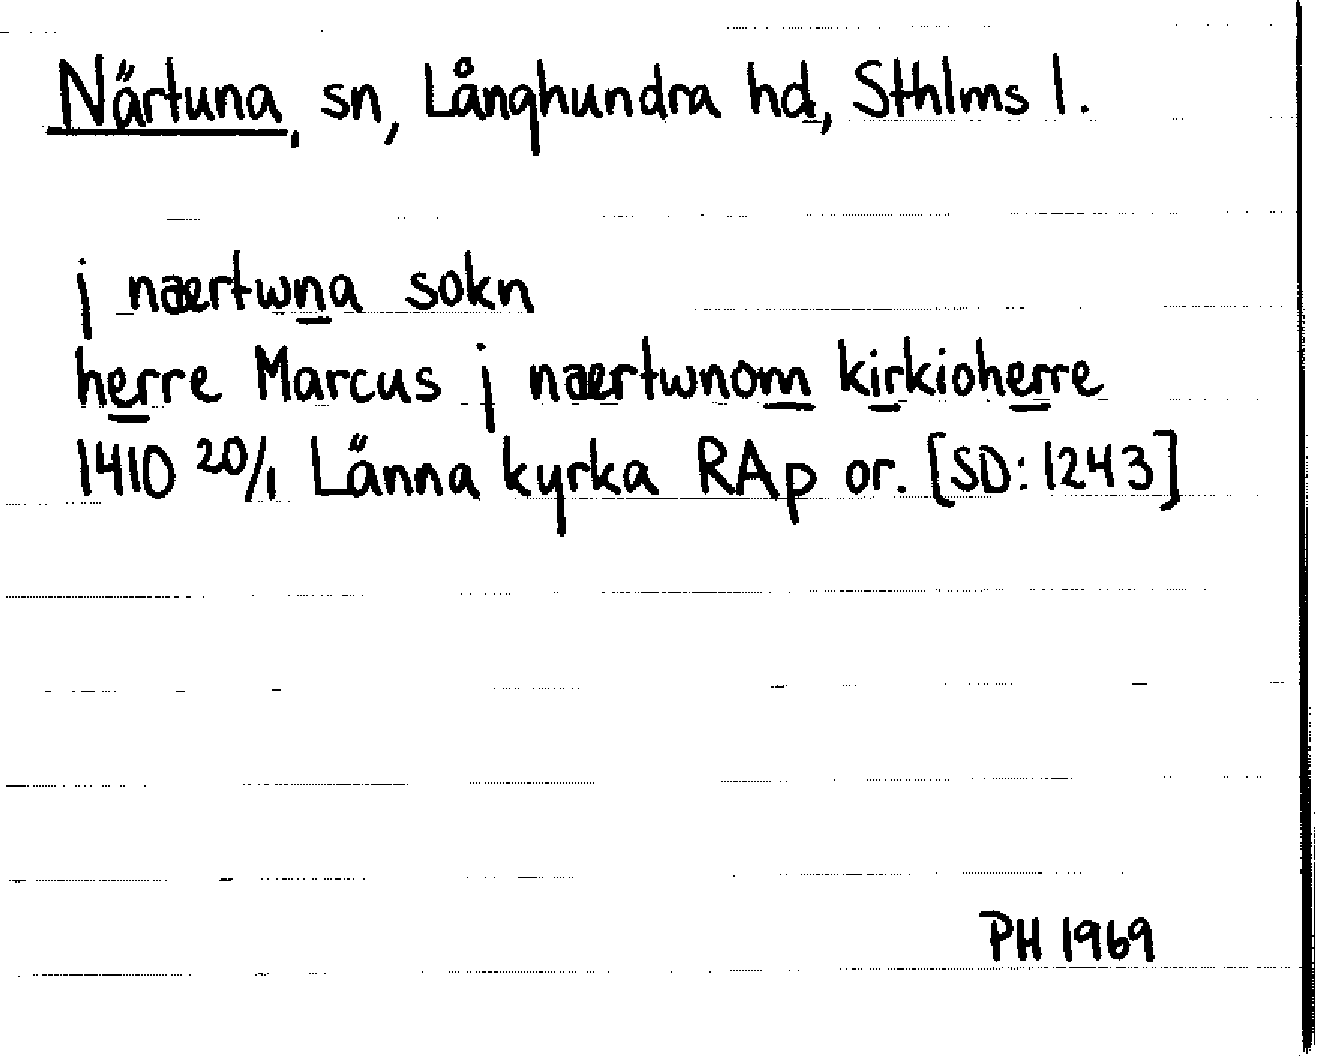 Närtuna, sn, Långhundra hd, Sthlms l.
j nærtwna sokn
herre Marcus j nærtwnom kirkioherre
1410 20/1 Länna kyrka RAp or. [SD: 1243]
PH 1969